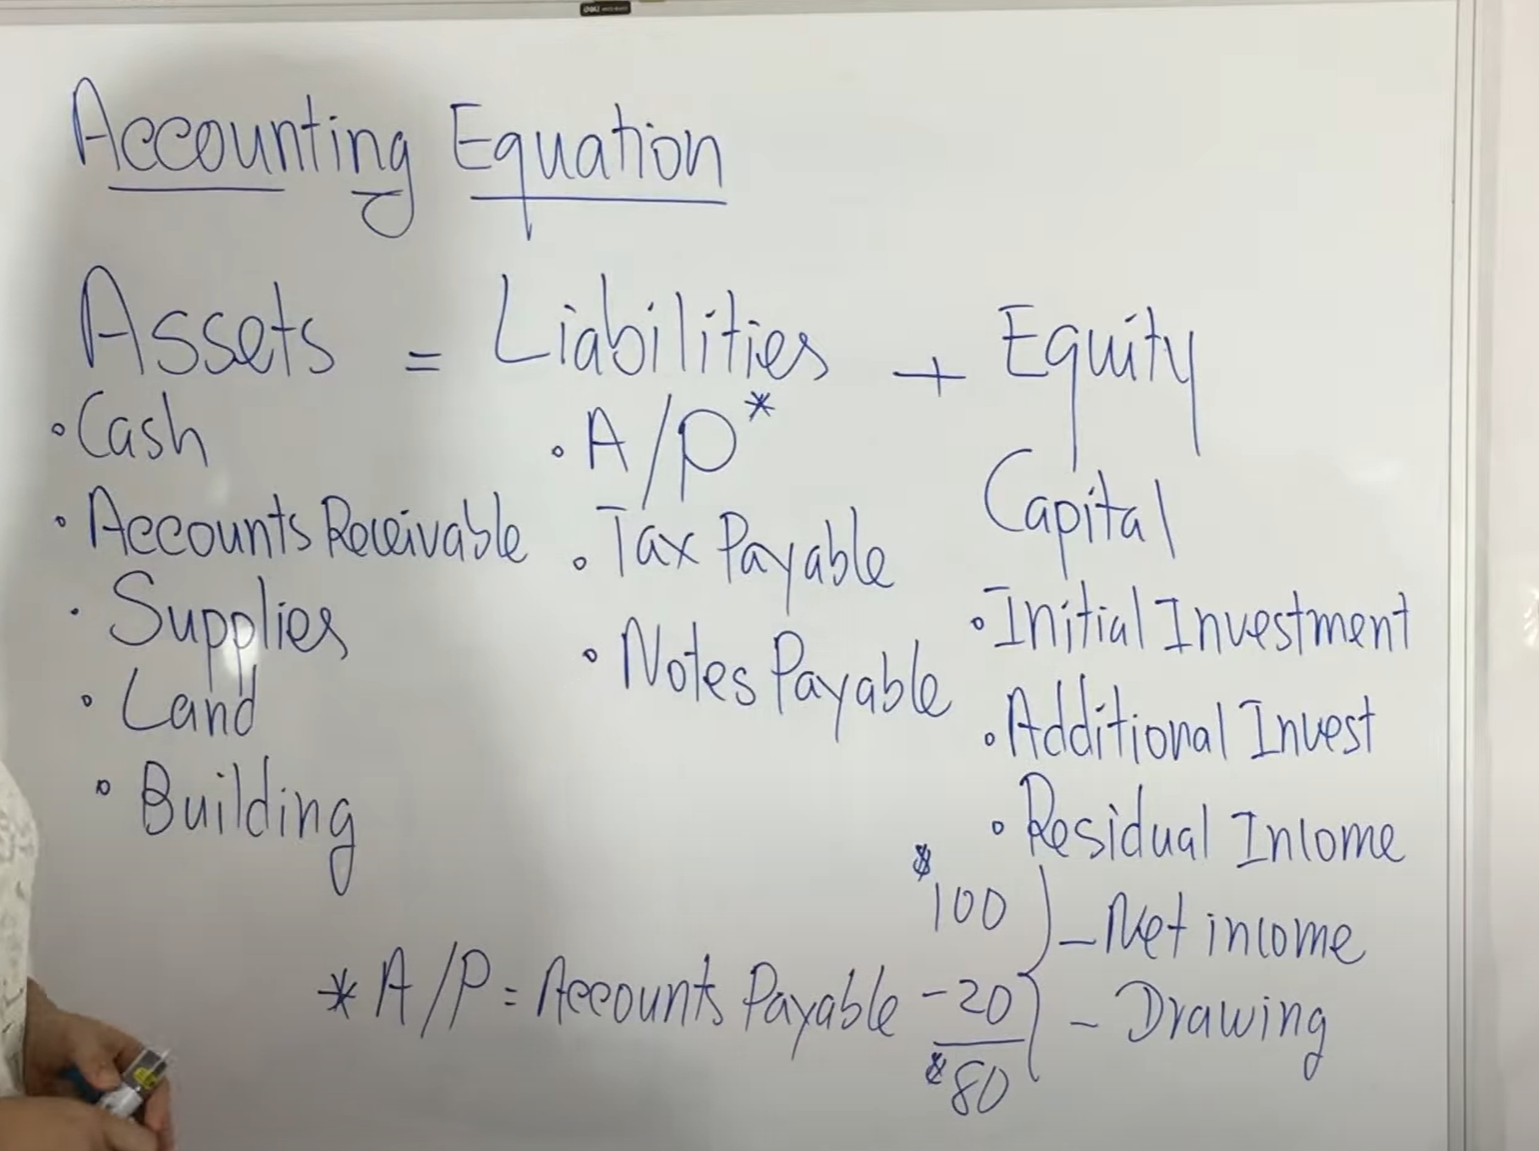 Accounting Equation
Assets = Liabilities + Equity
• Cash
• Accounts Receivable
• Supplies
• Land
• Building
• A/P*
• Tax Payable
• Notes Payable
Capital
• Initial Investment
• Additional Invest
• Residual Income
$100
- Net income
-20
- Drawing
$80
* A/P = Accounts Payable